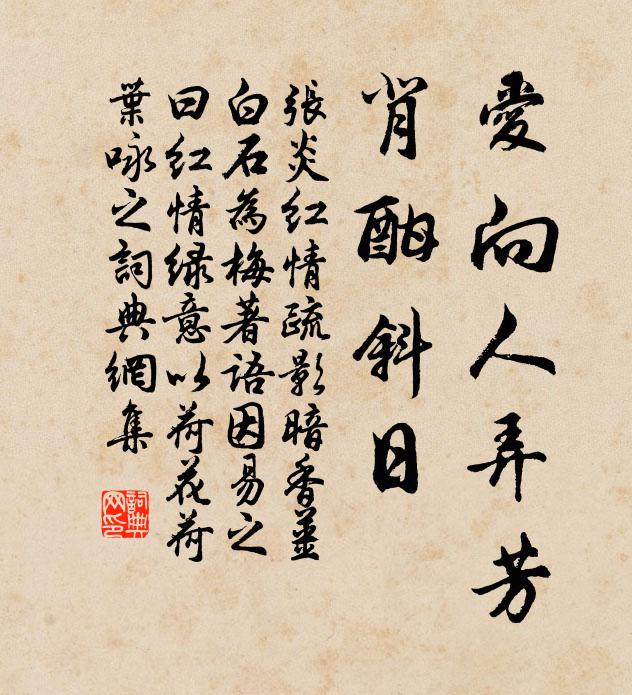 愛向人弄芳
背酣斜日
張炎紅情疏影暗香薑
白石為梅著語因易之
曰紅情綠意以荷花荷
葉咏之詞典網集
詞典網印